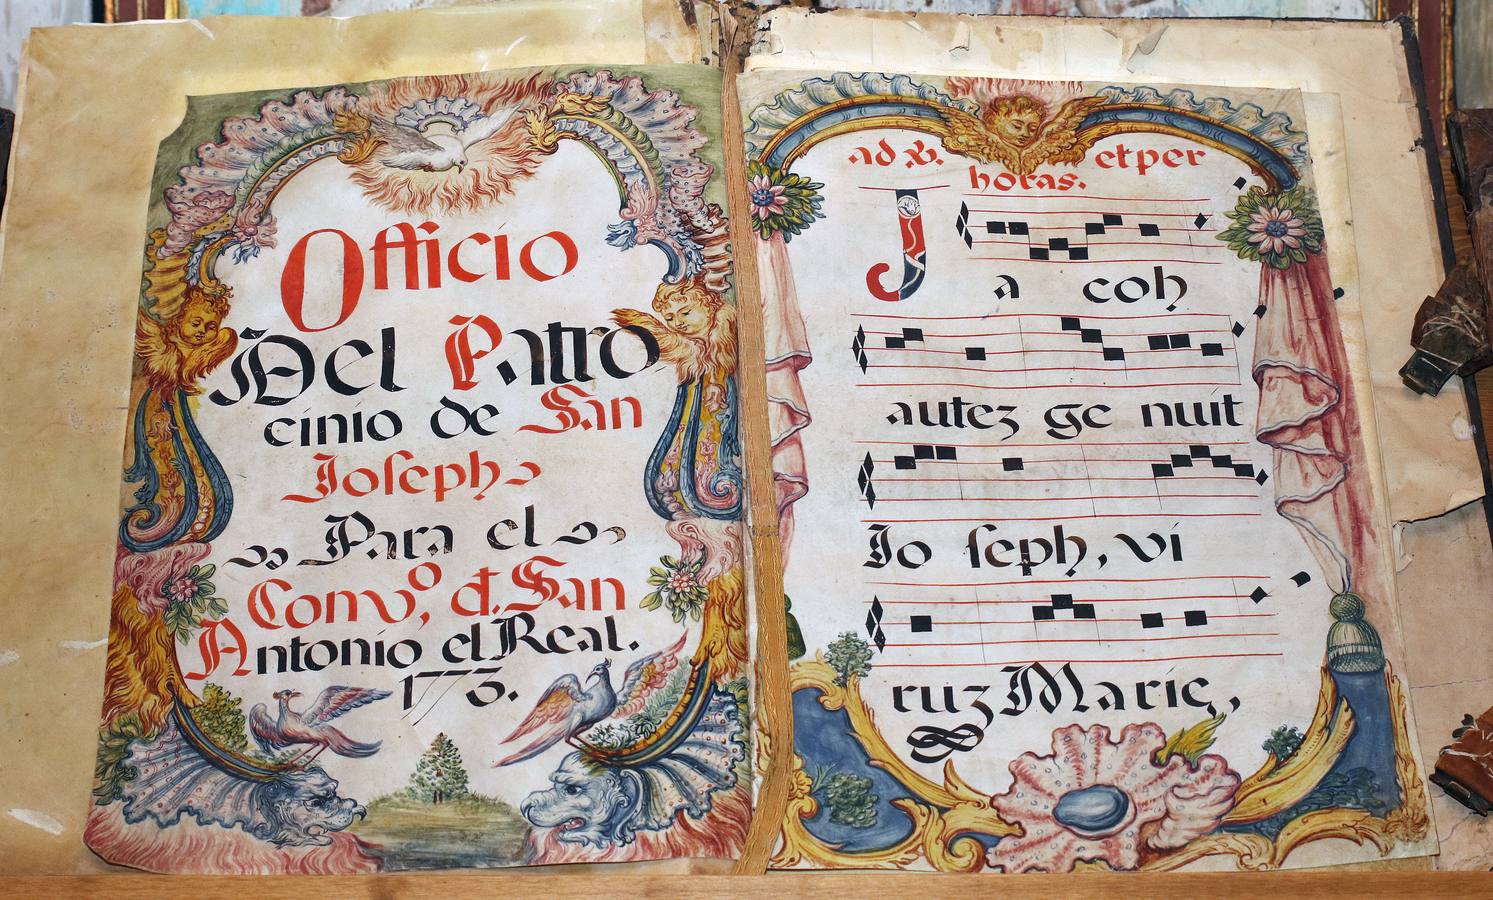 Officio
Del Patro
cinio de San
Joseph
Para el
Convº, d. San
Antonio el Real.
1773.
ad V. et per
horas.
J
a cob
autez ge nuit
Jo seph, vi
ruz Marie,